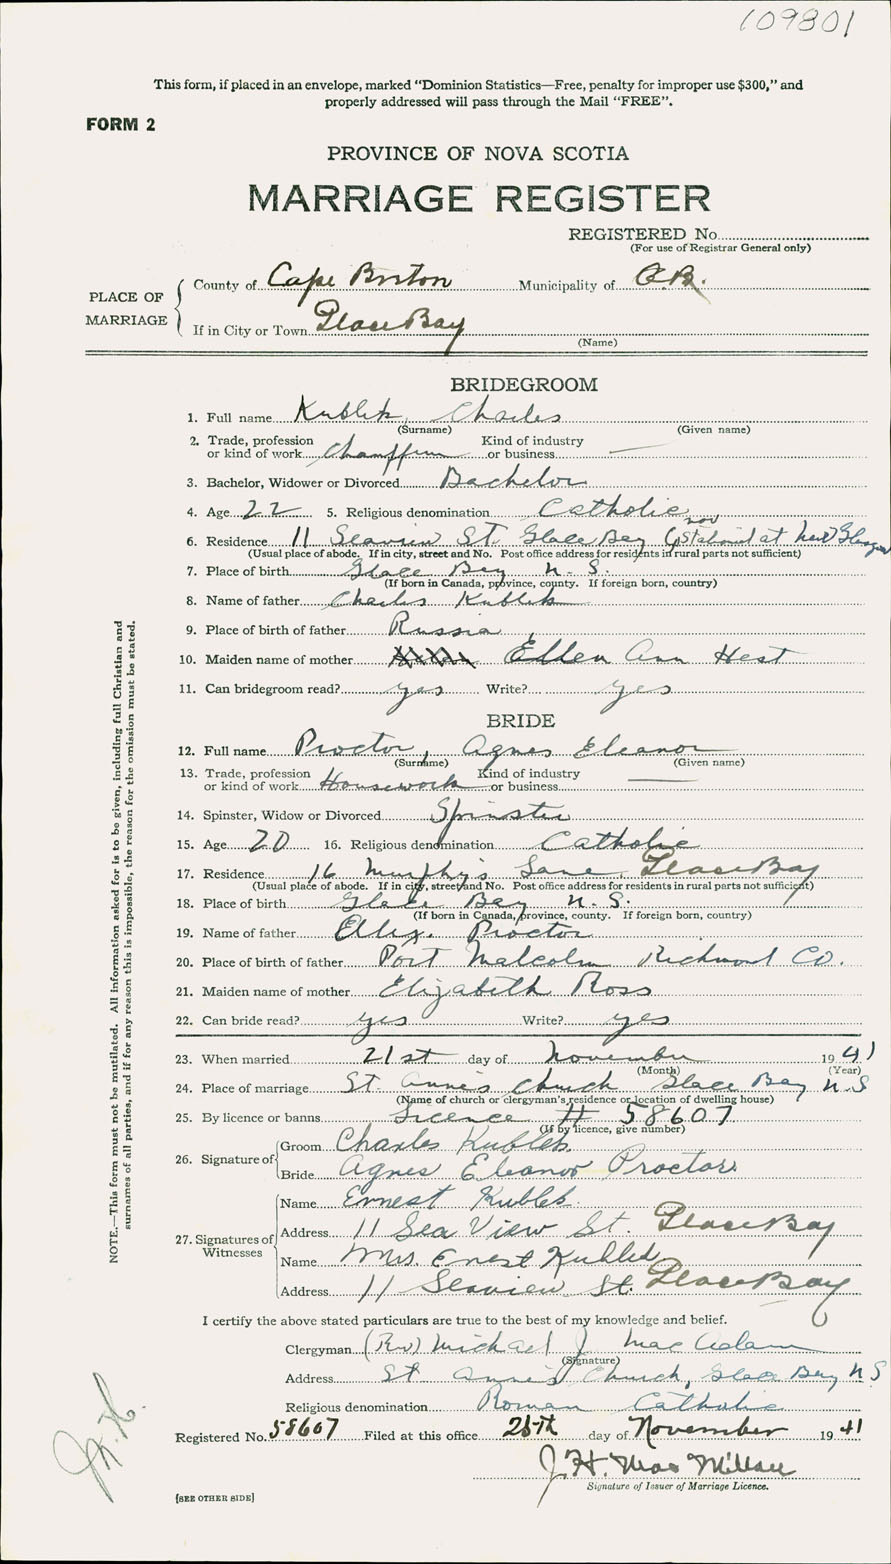 109801
This form, if placed in an envelope, marked “Dominion Statistics—Free, penalty for improper use $300,” and
properly addressed will pass through the Mail “FREE”.
FORM 2
PROVINCE OF NOVA SCOTIA
MARRIAGE REGISTER
REGISTERED No.
(For use of Registrar General only)
PLACE OF MARRIAGE
County of Cape Breton Municipality of C.B.
If in City or Town Glace Bay
(Name)
BRIDEGROOM
1. Full name Kublek, Charles
(Surname) (Given name)
2. Trade, profession or kind of work Chauffeur Kind of industry or business —
3. Bachelor, Widower or Divorced Bachelor
4. Age 22 5. Religious denomination Catholic
6. Residence 11 Seaview St. Glace Bay (now Stationed at New Glasgow
(Usual place of abode. If in city, street and No. Post office address for residents in rural parts not sufficient)
7. Place of birth Glace Bay N. S.
(If born in Canada, province, county. If foreign born, country)
8. Name of father Charles Kublek
9. Place of birth of father Russia
10. Maiden name of mother Ellen Ann Hest
11. Can bridegroom read? yes Write? yes
BRIDE
12. Full name Proctor, Agnes Eleanor
(Surname) (Given name)
13. Trade, profession or kind of work Housework Kind of industry or business —
14. Spinster, Widow or Divorced Spinster
15. Age 20 16. Religious denomination Catholic
17. Residence 16 Murphy's Lane. Glace Bay
(Usual place of abode. If in city, street and No. Post office address for residents in rural parts not sufficient)
18. Place of birth Glace Bay N. S.
(If born in Canada, province, county. If foreign born, country)
19. Name of father Proctor
20. Place of birth of father Port Malcolm Richmond Co.
21. Maiden name of mother Elizabeth Ross
22. Can bride read? yes Write? yes
23. When married 21st day of November 1941
(Month) (Year)
24. Place of marriage St. Anne's Church Glace Bay N.S
(Name of church or clergyman's residence or location of dwelling house)
25. By licence or banns Licence # 58607
(If by licence, give number)
26. Signature of
Groom Charles Kublek
Bride Agnes Eleanor Proctor
27. Signatures of Witnesses
Name Ernest Kublek
Address 11 Sea View St. Glace Bay
Name Mrs. Ernest Kublek
Address 11 Seaview St. Glace Bay
I certify the above stated particulars are true to the best of my knowledge and belief.
Clergyman (Rev) Michael J MacAdam
(Signature)
Address St Anne's Church, Glace Bay N S
Religious denomination Roman Catholic
Registered No. 58607 Filed at this office 25th day of November 1941
J. H. MacMillan
Signature of Issuer of Marriage Licence.
[SEE OTHER SIDE]
NOTE.—This form must not be mutilated. All information asked for is to be given, including full Christian and
surnames of all parties, and if for any reason this is impossible, the reason for the omission must be stated.